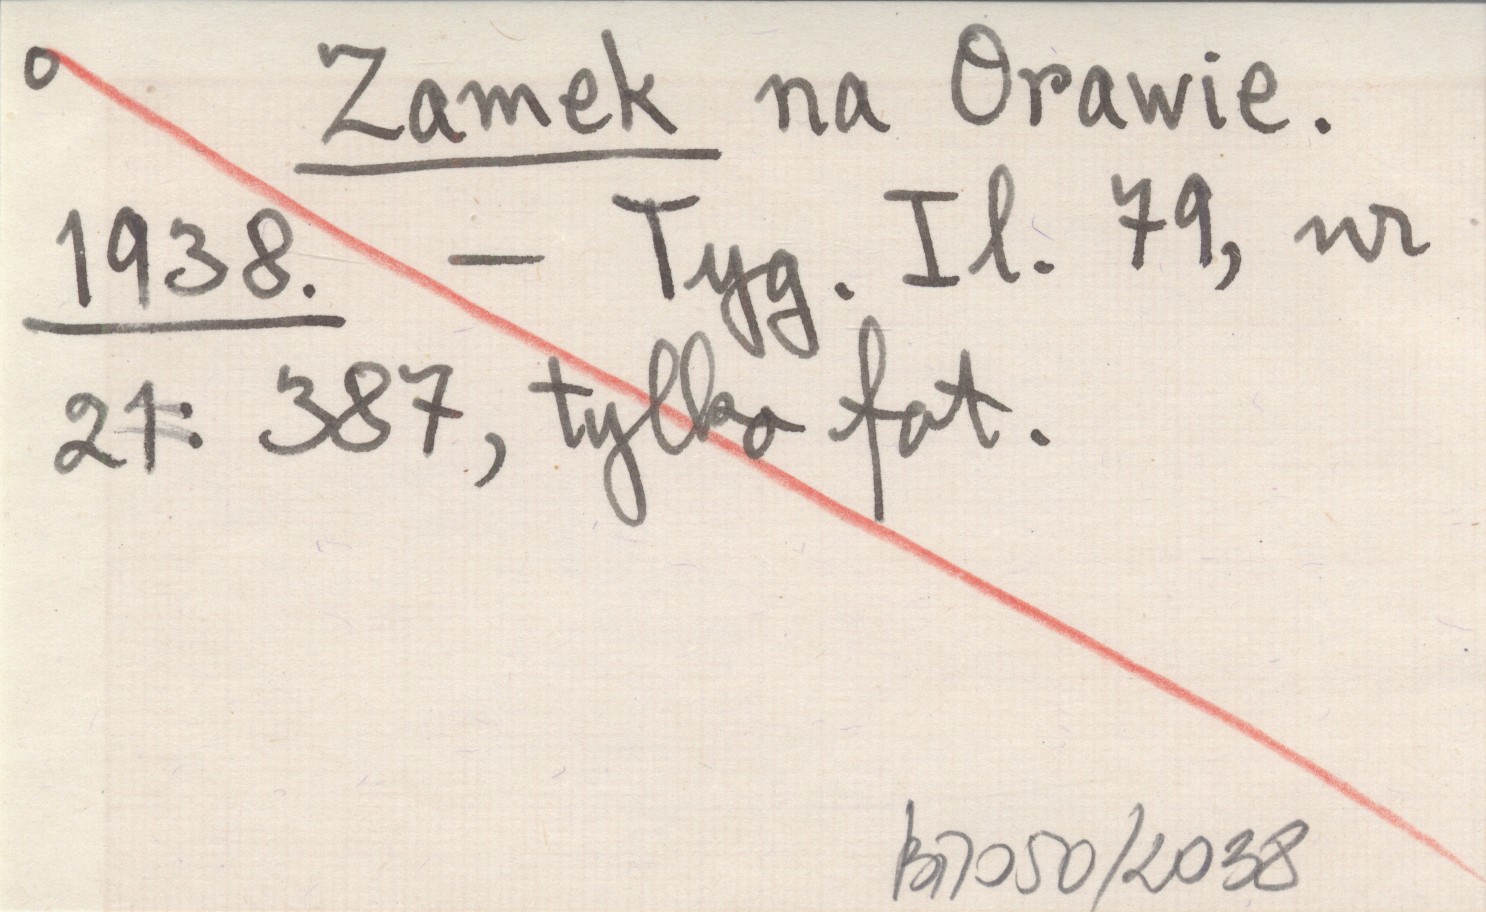 o Zamek na Orawie.
1938. — Tyg. Il. 79, nr
21: 387, tylko fot.
B17050/2038